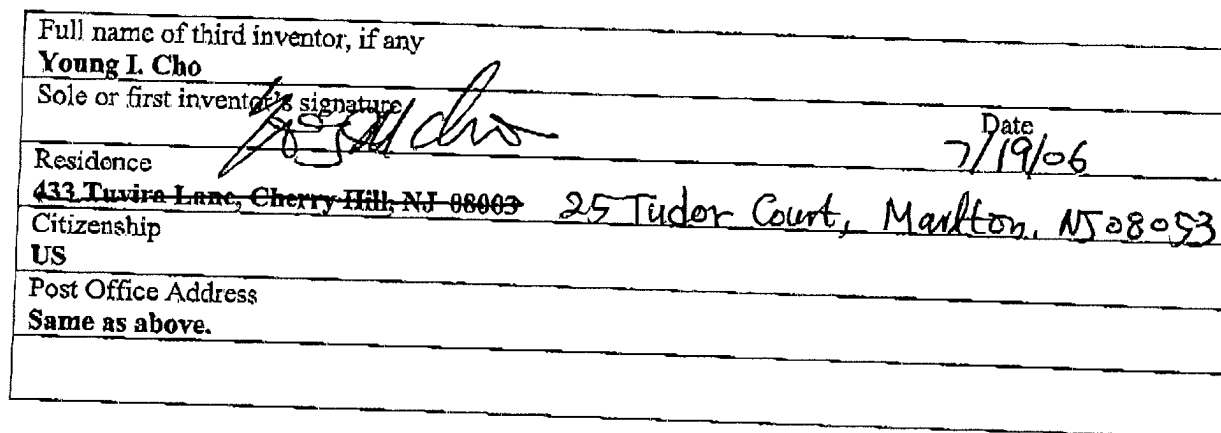 Full name of third inventor, if any
Young I. Cho
Sole or first inventor's signature
Date
7/19/06
Residence
433 Tuvira Lane, Cherry Hill, NJ 08003 25 Tudor Court, Marlton, NJ 08053
Citizenship
US
Post Office Address
Same as above.